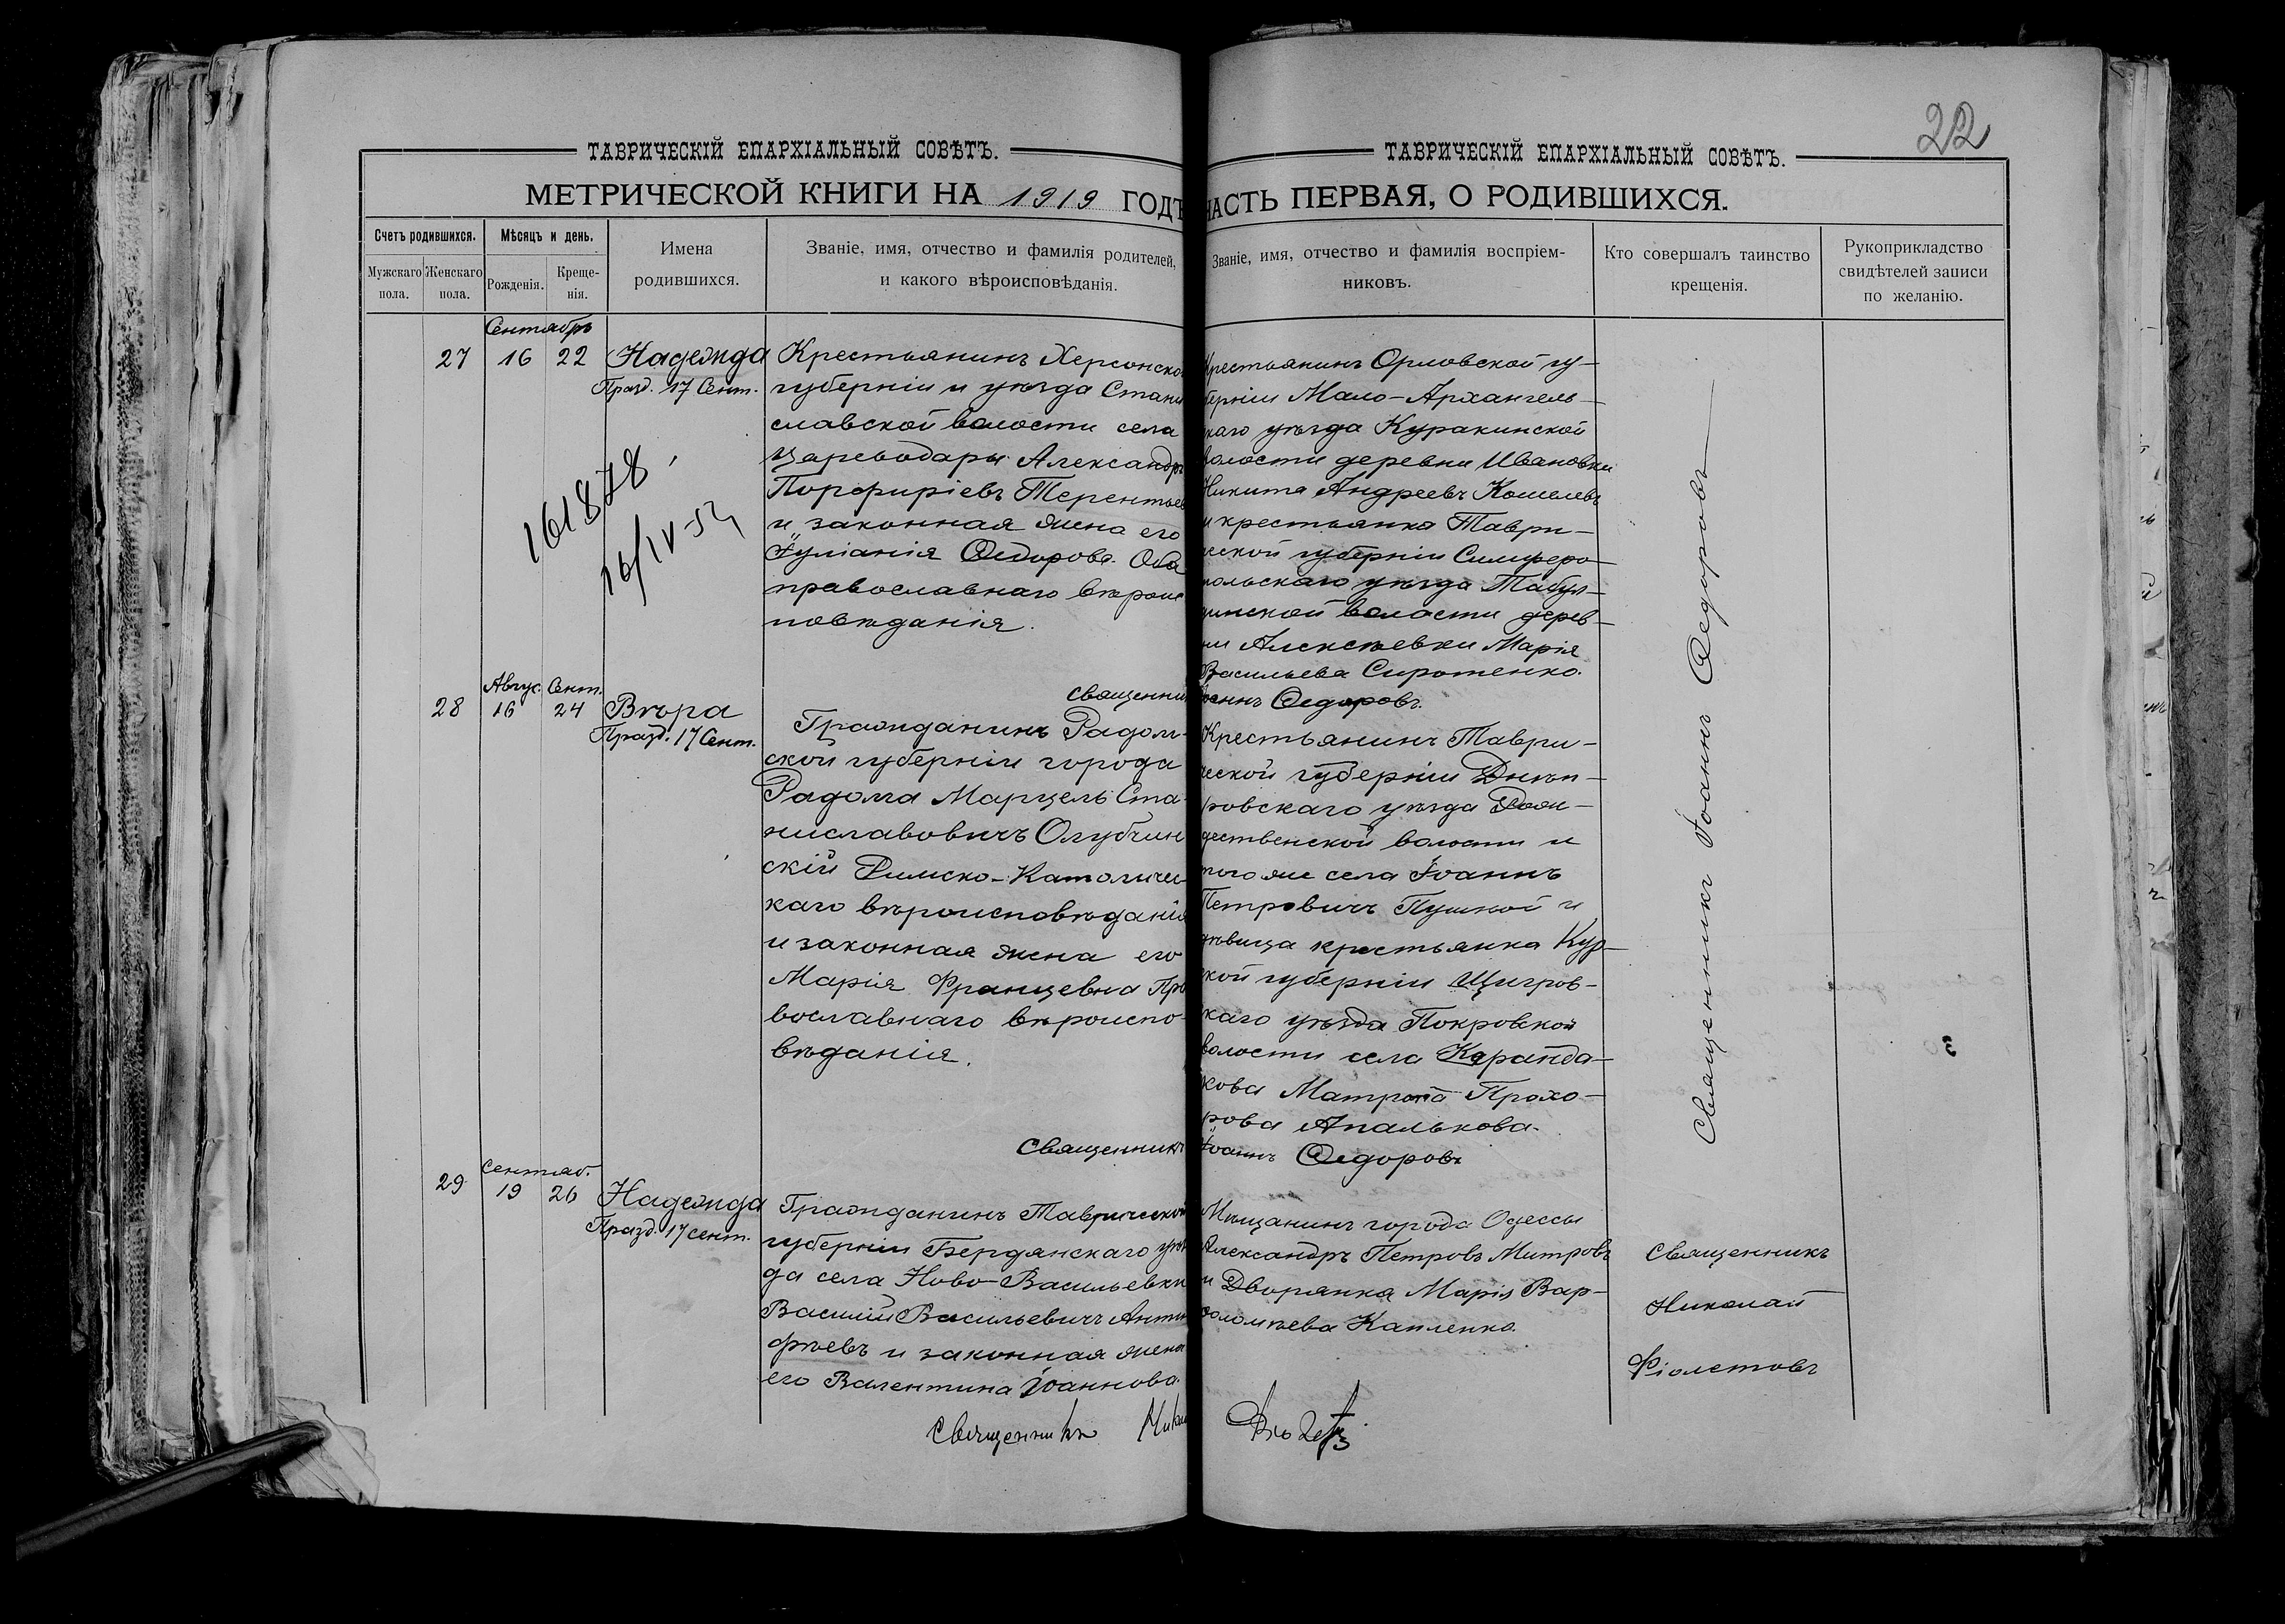 22
ТАВРИЧЕСКІЙ ЕПАРХІАЛЬНЫЙ СОВѢТЪ.
МЕТРИЧЕСКОЙ КНИГИ НА 1919 ГОДЪ
Счетъ родившихся.
Мужскаго пола.
Женскаго пола.
Мѣсяцъ и день.
Рожденія.
Креще-
нія.
Имена
родившихся.
Званіе, имя, отчество и фамилія родителей,
и какого вѣроисповѣданія.
ТАВРИЧЕСКІЙ ЕПАРХІАЛЬНЫЙ СОВѢТЪ.
ЧАСТЬ ПЕРВАЯ, О РОДИВШИХСЯ.
Званіе, имя, отчество и фамилія воспріем-
никовъ.
Кто совершалъ таинство
крещенія.
Рукоприкладство
свидѣтелей записи
по желанію.
Сентябрь
27 16 22 Надежда
Празд. 17 Сент.
161878
16/IV-52
Крестьянинъ Херсонской
губерніи и уѣзда Стани
славской волости села
Цареводары Александръ
Порфиріевъ Терентьев
и законная жена его
Іуліанія Ѳедорова. Оба
православнаго вѣроис
повѣданія.
Крестьянинъ Орловской гу-
берніи Мало-Архангель-
скаго уѣзда Куракинской
волости деревни Ивановки
Никита Андреевъ Кошелевъ
и крестьянка Таври-
ческой губерніи Симферо-
польскаго уѣзда Табул-
динской волости дерев-
ни Алексѣевки Марія
Васильева Сиротенко.
Священникъ Іоаннъ Ѳедоровъ.
Авгус. Сент.
28 16 24 Вѣра
Празд. 17 Сент.
Гражданинъ Радом-
ской губерніи города
Радома Марцель Ста-
ниславовичъ Олубчин
скій Римско-Католичес-
каго вѣроисповѣданія
и законная жена его
Марія Францевна Пра
вославнаго вѣроиспо-
вѣданія.
Крестьянинъ Таври-
ческой губерніи Днѣп-
ровскаго уѣзда Рож-
дественской волости и
того же села Іоаннъ
Петровичъ Пушной и
дѣвица крестьянка Кур-
ской губерніи Щигров-
скаго уѣзда Покровской
волости села Каранда-
кова Матрона Прохо-
рова Апалькова.
Священникъ Іоаннъ Ѳедоровъ
Священникъ Іоаннъ Ѳедоровъ
Сентяб.
29 19 26 Надежда
Празд. 17 сент.
Гражданинъ Таврической
губерніи Бердянскаго уѣз
да села Ново-Васильевки
Василій Васильевичъ Анти
фѣевъ и законная жена
его Валентина Іоаннова.
Мѣщанинъ города Одессы
Александръ Петровъ Митровъ
и Дворянка Марія Вар-
ѳоломѣева Капленко.
Священникъ
Николай
Фіолетовъ
Священникъ